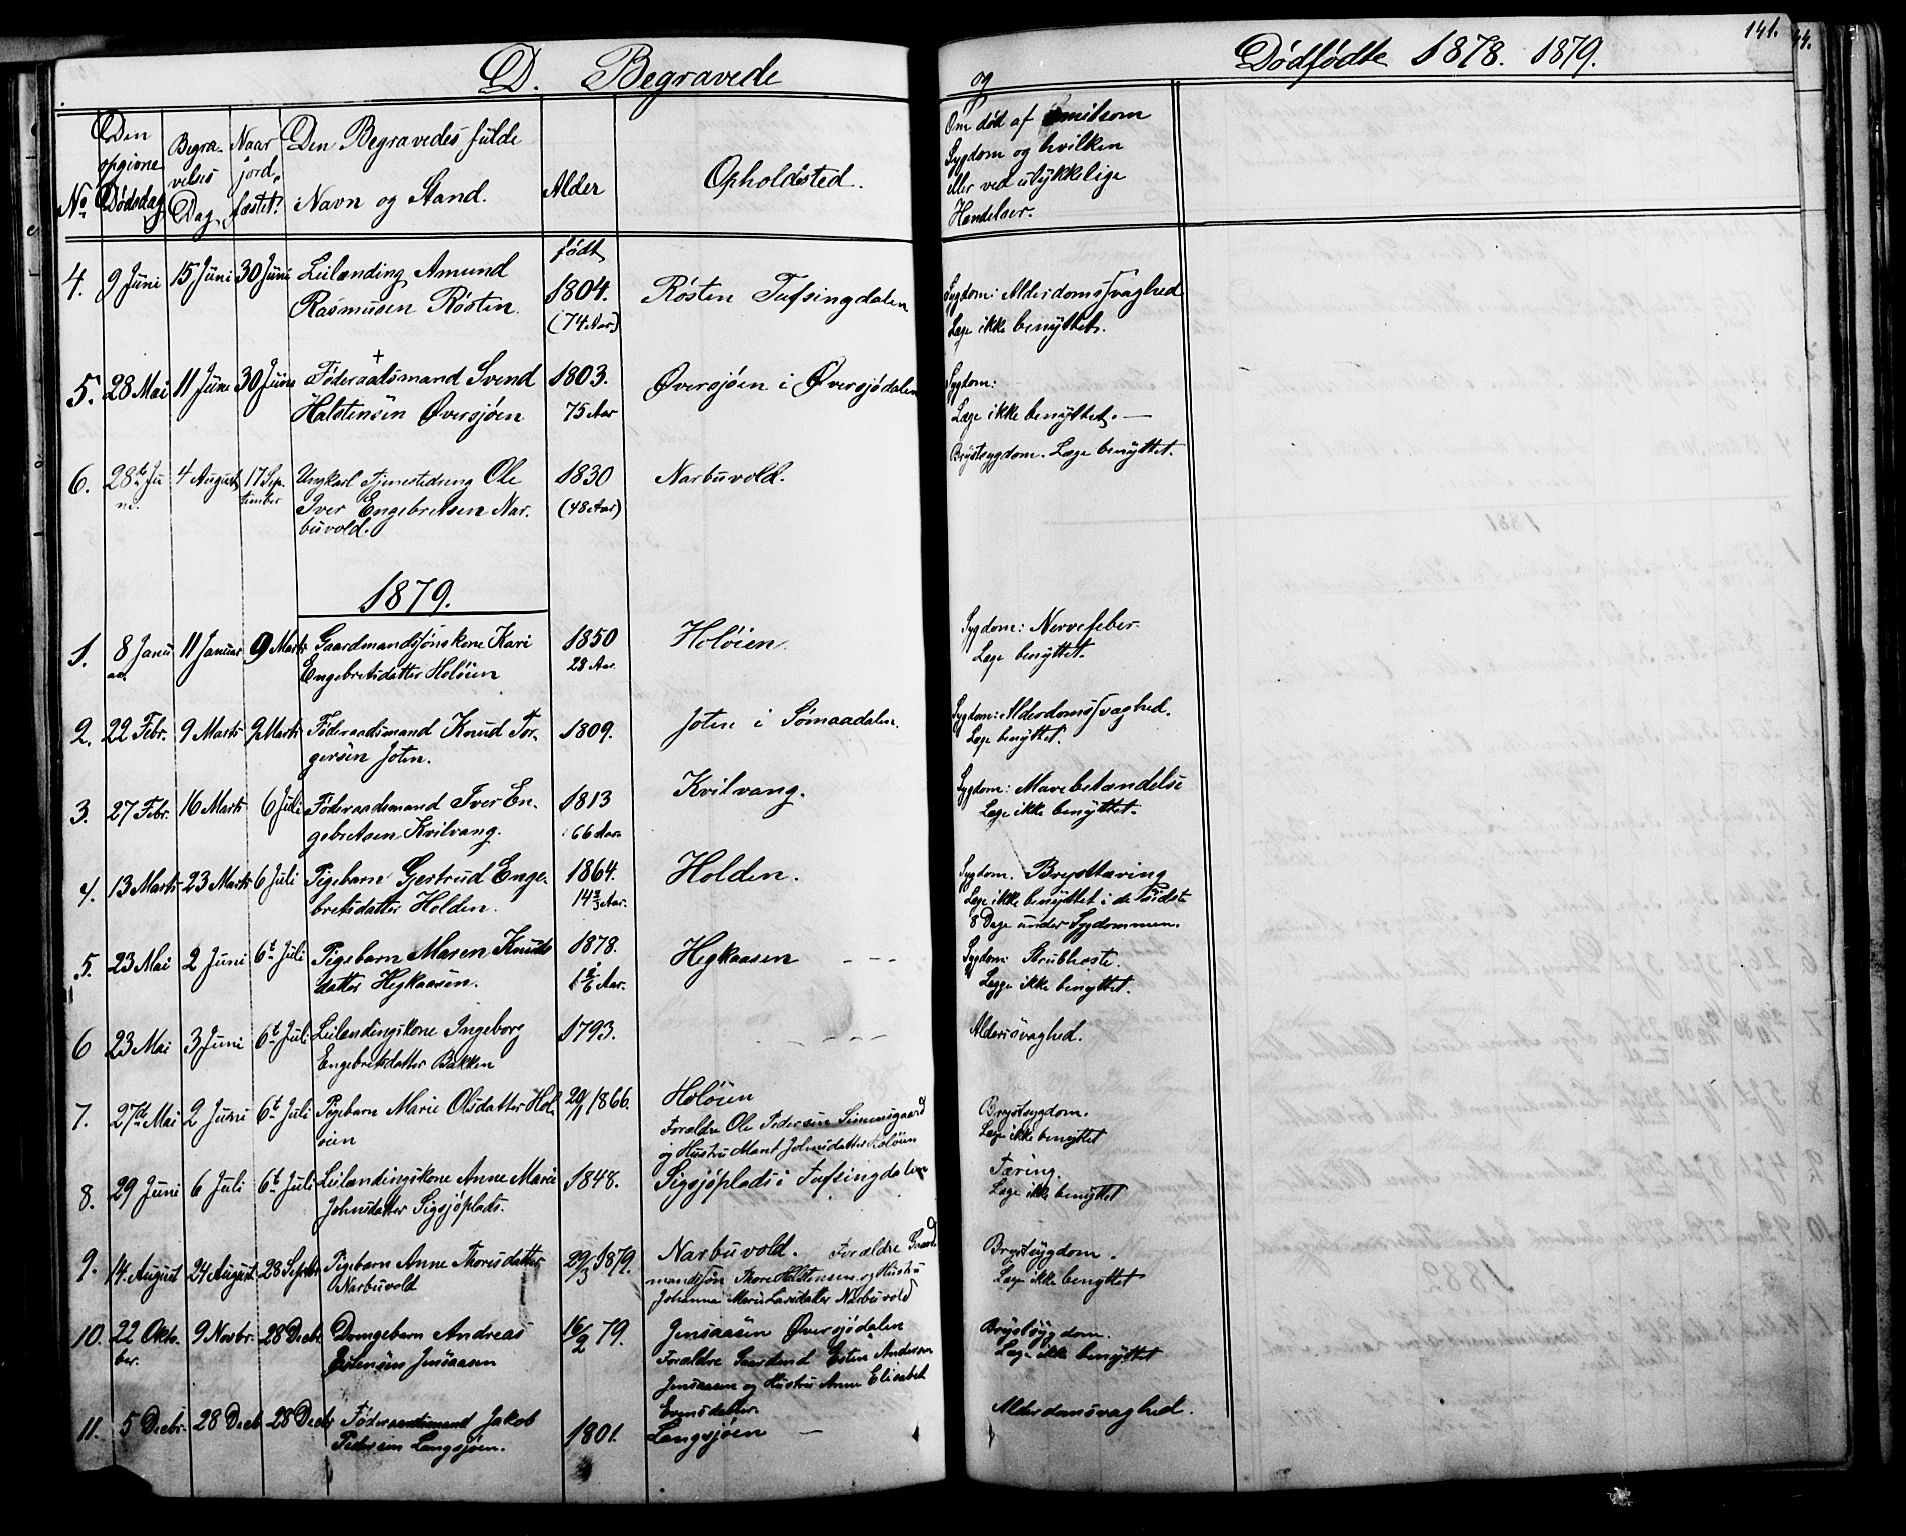 D. Begravede
og
Dødfødte 1878. 1879.
141.
No
Den opgivne Dødsdag
Begravelses Dag
Naar jordfæstet?
Den Begravedes fulde
Navn og Stand.
Alder
Opholdsted.
Om død af
Sygdom og hvilken
eller ved ulykkelige
Hændelser.
4. 9 Juni 15 Juni 30 Juni Leilænding Amund
Rasmusen Røsten
født
1804.
(74 Aar)
Røsten Tufsingdalen
Sygdom: Alderdomssvaghed
Læge ikke benyttet.
5. 28 Mai 11 Juni 30 Juni Føderaadsmand Svend
Halstensen Øversjøen
1803.
75 Aar
Øversjøen i Øversjødalen
Sygdom:
Læge ikke benyttet. —
6. 28de Juni. 4 August 17 September Ungkarl Tjenestedreng Ole
Iver Engebretsen Narbuvold.
1830
(48 Aar)
Narbuvold.
Brystsygdom. Læge benyttet.
1879.
1. 8 Januar. 11 Januar 9 Marts Gaardmandssønskone Kari
Engebretsdatter Holøien
1850
28 Aar.
Holøien.
Sygdom: Nervefeber
Læge benyttet.
2. 22 Febr. 9 Marts 9 Marts Føderaadsmand Knud Torgersen Joten.
1809.
Joten i Sømaadalen.
Sygdom: Alderdomssvaghed.
Læge benyttet.
3. 27 Febr. 16 Marts 6 Juli Føderaadsmand Iver Engebretsen Kvilvang.
1813
66 Aar.
Kvilvang.
Sygdom: Mavebetændelse
Læge ikke benyttet.
4. 13 Marts 23 Marts 6 Juli Pigebarn Gjertrud Engebretsdatter Holden.
1864.
14 2/3 Aar.
Holden.
Sygdom. Brysttæring
Læge ikke benyttet i de sidste
8 Dage under Sygdommen.
5. 23 Mai 2 Juni 6t Juli Pigebarn Maren Knudsdatter Hegkaasen.
1878.
Aar.
Hegkaasen
Sygdom Strubhoste.
Lægge ikke benyttet.
6 23 Mai 3 Juni 6t Juli Leilændingskone Ingeborg
Engebretsdatter Bakken
1793.
Aldersvaghed.
7. 27de Mai 2 Juni 6t Juli Pigebarn Marie Olsdatter Holøien
29/1 1866.
Holøien
Forældre Ole Pedersen Simensgaard
og Hustru Marit Johnsdatter Holøien
Brystsygdom.
Læge ikke benyttet
8. 29 Juni 6 Juli 6t Juli Leilændingskone Anne Marie
Johnsdatter Sigsjøplads.
1848.
Sigsjøplads i Tufsingdalen
Tæring.
Læge ikke benyttet
9. 14 August 24 August 28 Septbr Pigebarn Anne Thoresdatter
Narbuvold
29/3 1879.
Narbuvold. Forældre Gaardmandssøn Thore Halstensen og Hustru
Johanna Marie Larsdatter Narbuvold
Brystsygdom.
Læge ikke benyttet
10. 22 Oktober. 9 Novbr. 28 Decbr Drengebarn Andreas
Estensen Jensaasen
16/2 79.
Jensaasen Øversjødalen
Forældre Esten Andersen
Jensaasen og Hustru Anne Elisabet
Brystsygdom.
Læge ikke benyttet
11. 5 Decbr. 28 Decb 28 Decbr Føderaadsmand Jakob
Pedersen Langsjøen.
1801.
Langsjøen —
Alderdomsvaghed.